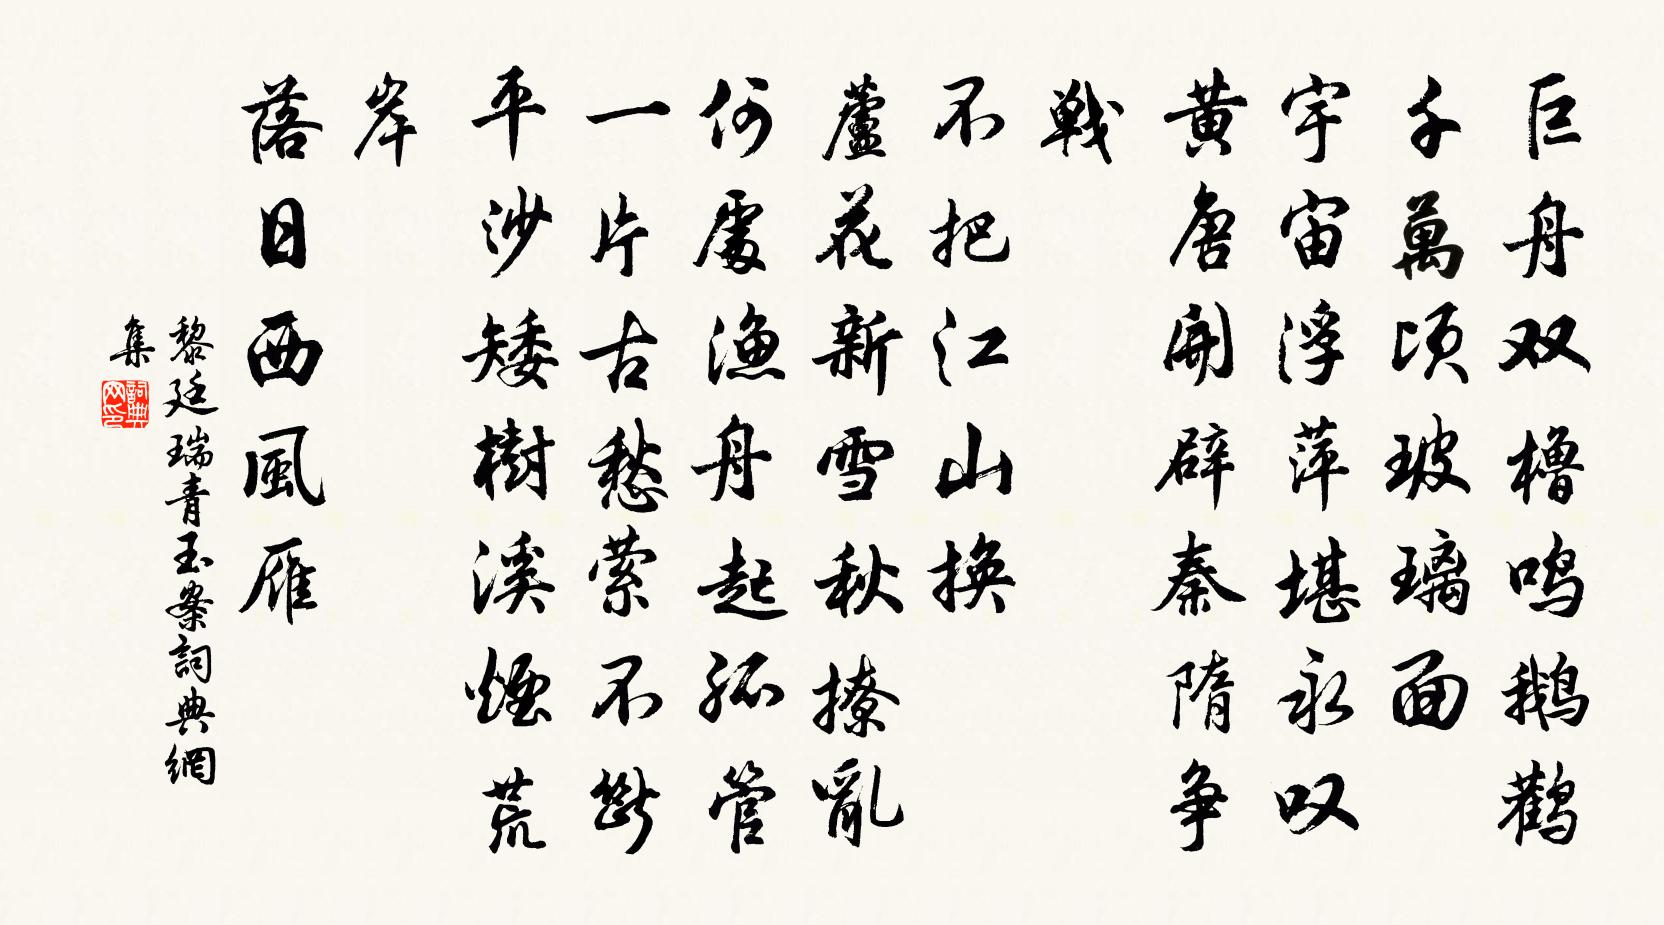 巨舟双橹鸣鹅鹳
千萬顷玻璃面
宇宙浮萍堪永叹
黄唐開辟秦隋争
戦
不把江山换
蘆花新雪秋撩亂
何處渔舟起孤管
一片古愁萦不斷
平沙矮樹溪煙荒
岸
落日西風雁
黎廷瑞青玉案詞典網
集
詞典網印